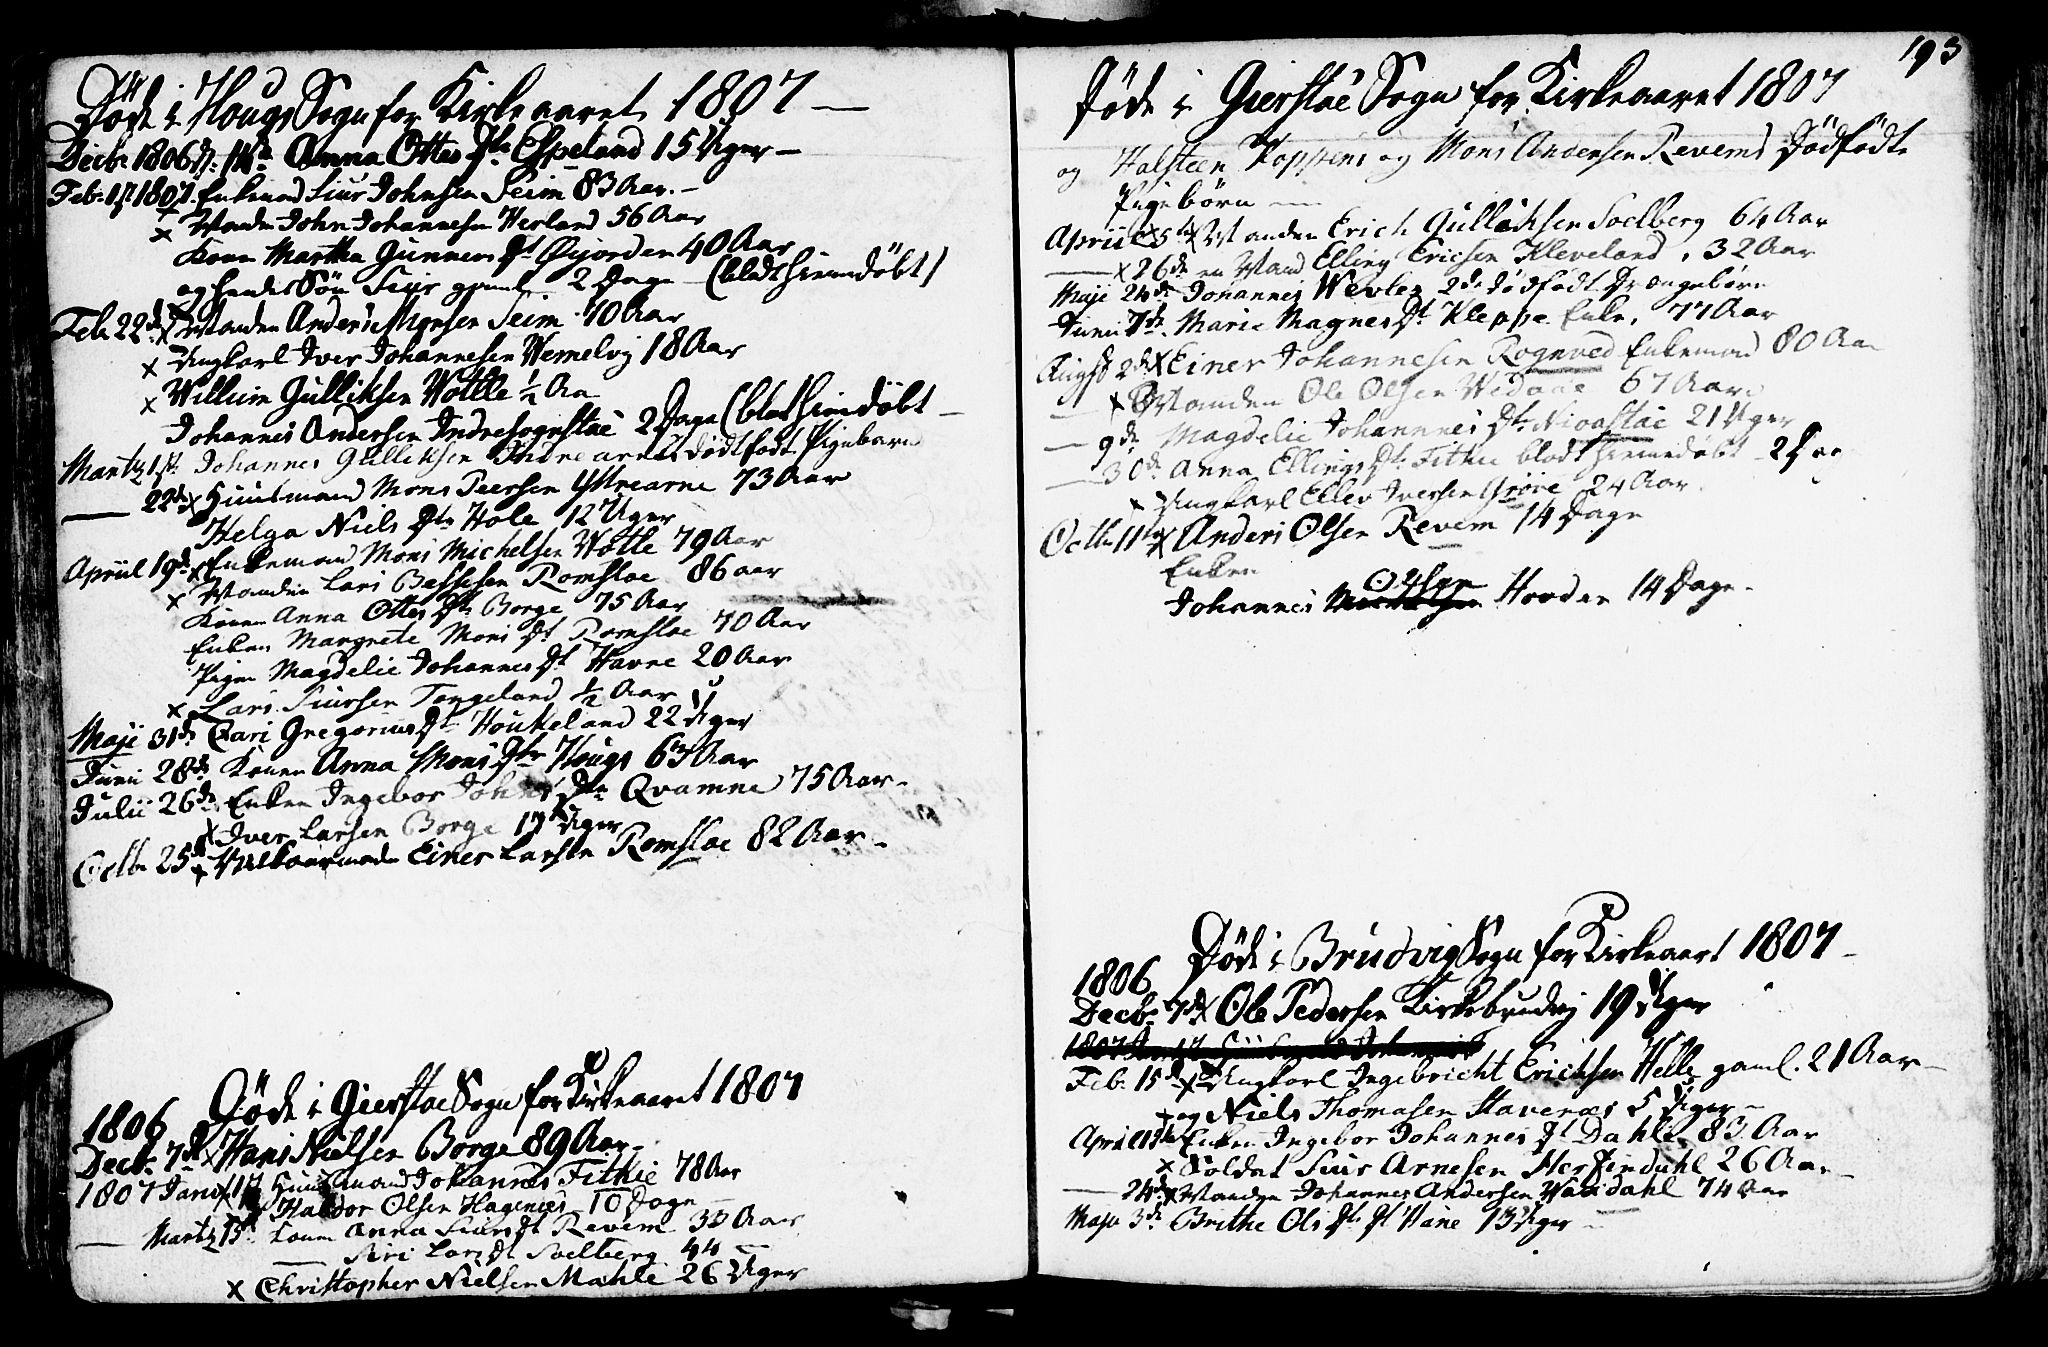 Døde i Hougs Sogn for Kirkeaaret 1807
Decbr 1806 d. 14de Anna Ottes Dtr Espeland 15 Uger
Feb. 1st 1807. Enkemand Siur Johnsen Seim 83 Aar.
x Manden John Johannesen Herland 56 Aar
Konen Martha Gunners Dt Øyjorden 40 Aar
og hendes Søn Siur gaml 2 Dage (blodt hiemdøbt)
Feb. 22de x Manden Anders Monsen Seim 70 Aar
x Ungkarl Iver Johannesen Wemelvig 18 Aar
x Willum Gulliksen Wotle ½ Aar
Johannes Andersen Indresognstae 2 Dage (blot hiemdøbt
Martz 1st. Johannes Gulliksen Indre arnes dødtfødt Pigebarn
22de x Huusmand Mons Peersen Yttrearne 73 Aar
Helga Niels Dtr Hole 12 Uger
Apriil 19de x Enkemand Mons Michelsen Wotle 79 Aar
x Manden Lars Bessesen Romsloe 86 aar
Konen Anna Ottes Dtr Borge 75 Aar
Enken Margrete Mons Dt Romsloe 70 Aar
Pigen Magdelie Johannes Dt Havre 20 Aar
x Lars Siursen Tengeland ½ Aar
Maji 31de Cari Gregorius Dtr Houkeland 22 Uger
Junii 28de Konen Anna Mons Dtr Hougs 63 Aar
Julii 26de Enken Ingebor Johns Dtr Qvamme 75 Aar
x Iver Larsen Borge 17 Uger
Octbr 25de x Vilkaarmanden Einer Larsen Romsloe 82 Aar
Døde i Gierstae Sogn for Kirkeaaret 1807
1806
Decbr 7de x Hans Nielsen Borge 89 Aar
1807 Jan. 17 Huusmand Johannes Fithie 78 Aar
Haldor Olsen Hagenæs 10 Dage
Martz 15de Konen Anna Siurs Dt Revem 33 Aar
Siri Lars Dt Soelberg 44
x Christopher Nielsen Mahle 26 Uger
193
Døde i Gierstae Sogn for Kirkeaaret 1807
og Halsteen Koppens og Mons Andersen Revems Dødfødte
Pigebörn
Apriil 5te x Manden Erich Gulliksen Soelberg 64 Aar
x 26de en Mand Elling Ericsen Kleveland, 32 Aar
Maji 24de Johannes Wevlez 2de dødfødt Drengebörn
Junii 7de. Marie Magnes Dt Kleppe Enke, 77 Aar
Augst 2de x Einer Johannesen Rognved Enkemand 80 Aar
x Manden Ole Olsen Wedaae 67 Aar
9de Magdelie Johannes Dtr Nioastae 21 Uger
30de Anna Ellings Dtr Fithie blodt hiemdøbt 2 Dage
x Ungkarl Ellev Iversen Grøne 24 Aar
Octbr 11te x Anders Olsen Revem 14 Dage
Enken
Olsen
Johannes Hovden 14 Dage
Døde i Brudvig Sogn for Kirkeaaret 1807
1806
Decbr 7de x Ole Pedersen Kirkebrudvig 19 Uger
Feb. 15de x Ungkarl Ingebricht Erichsen Helle gaml. 21 Aar
x og Niels Thomasen Stavenæs 5 Uger
April Enken Ingebor Johannes Dt Dahle 83 Aar
x Soldat Siur Arnesen Herfindahl 26 Aar
24de x Manden Johannes Andersen Waxdahl 74 Aar
Maji 3de Brithe Ols Dtr Dt Vane 13 Uger